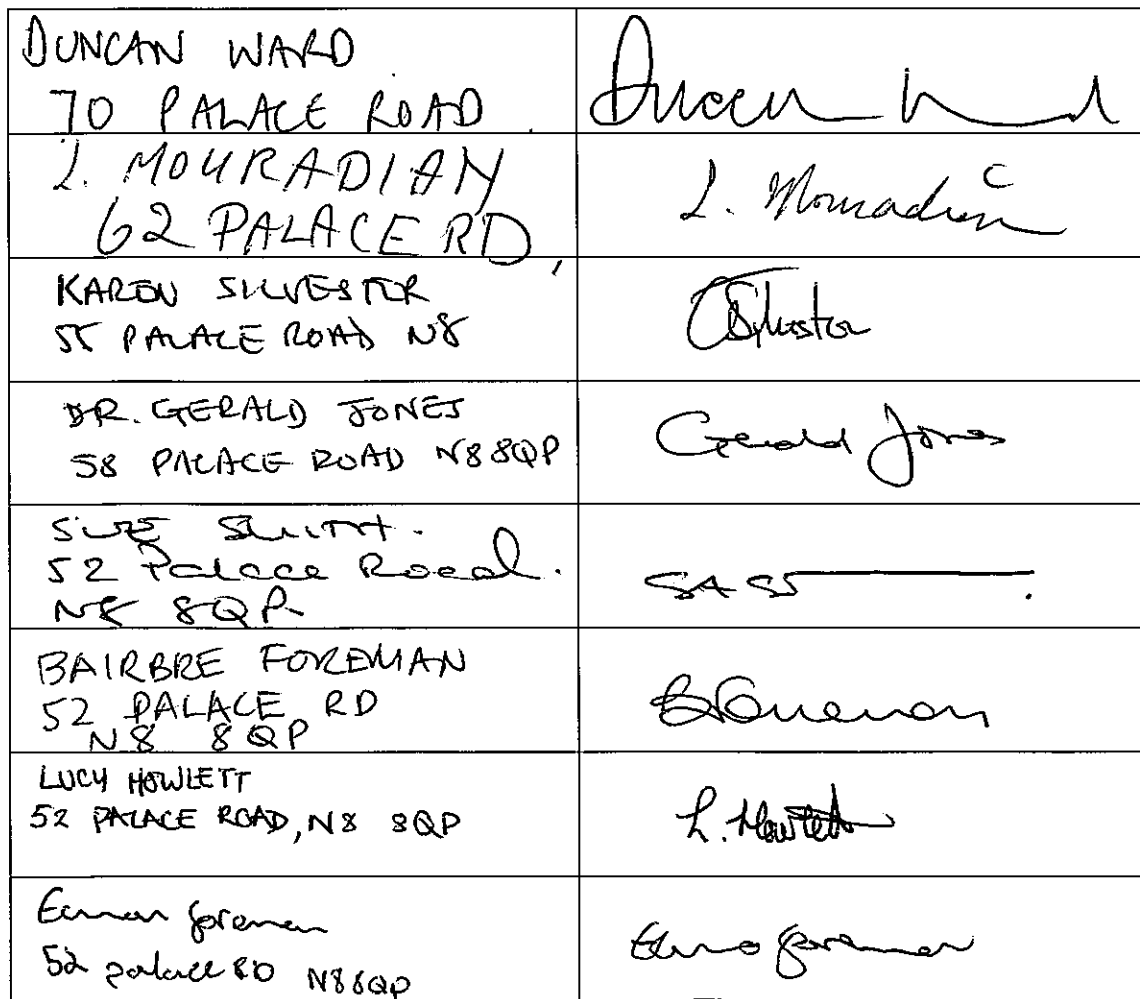 DUNCAN WARD
70 PALACE ROAD.
L. MOURADIAN
62 PALACE RD,
L. Mouradian
KAREN SILVESTER
55 PALACE ROAD N8
DR. GERALD JONES
58 PALACE ROAD N8 8QP
Gerald Jones
SUE SMITH.
52 Palace Road.
N8 8QP
BAIRBRE FOREMAN
52 PALACE RD
N8 8QP
LUCY HOWLETT
52 PALACE ROAD, N8 8QP
L. Howlett
foreman
52 palace RD N8 8QP
foreman